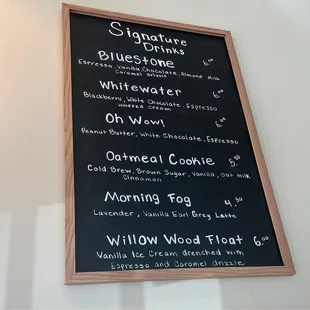 Signature
Drinks
Bluestone 6.00
Espresso, Vanilla, Chocolate, Almond Milk
Caramel drizzle
Whitewater 6.00
Blackberry, White Chocolate, Espresso
whipped cream
Oh Wow! 6.00
Peanut Butter, White Chocolate, Espresso
Oatmeal Cookie 5.50
Cold Brew, Brown Sugar, Vanilla, Oat milk
Cinnamon
Morning Fog 4.50
Lavender, Vanilla Earl Grey Latte
Willow Wood Float 6.00
Vanilla Ice Cream drenched with
Espresso and Caramel drizzle